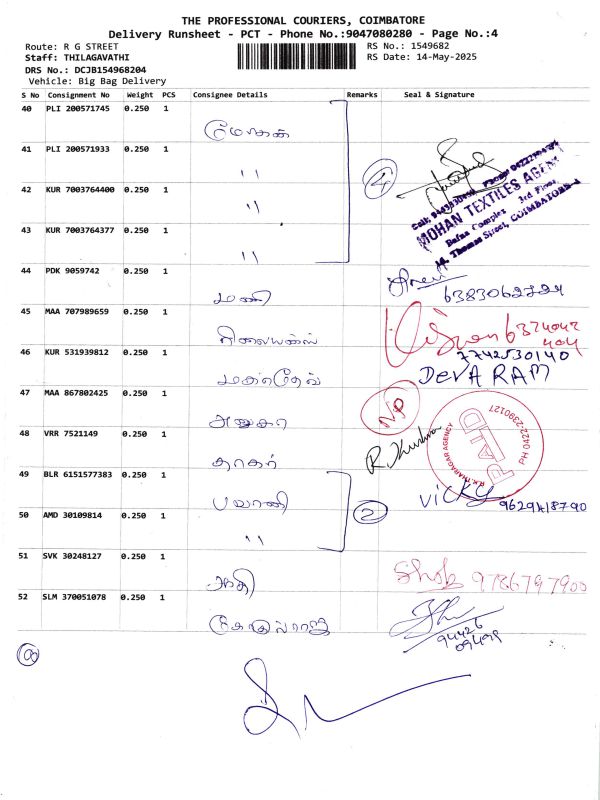 THE PROFESSIONAL COURIERS, COIMBATORE
Delivery Runsheet - PCT - Phone No.:9047080280 - Page No.:4
Route: R G STREET
RS No.: 1549682
Staff: THILAGAVATHI
RS Date: 14-May-2025
DRS No.: DCJB154968204
Vehicle: Big Bag Delivery
S No Consignment No Weight PCS Consignee Details Remarks Seal & Signature
40 PLI 200571745 0.250 1 மோகன்
41 PLI 200571933 0.250 1 " 4
42 KUR 7003764400 0.250 1 "
MOHAN TEXTILES AGENCY
Bafna Complex 3rd Floor
14, Thomas Street, COIMBATORE-1
43 KUR 7003764377 0.250 1 "
44 PDK 9059742 0.250 1 மணி
45 MAA 707989659 0.250 1 ரிலையன்ஸ்
46 KUR 531939812 0.250 1
7742530140
DEVA RAM
47 MAA 867802425 0.250 1 NP
48 VRR 7521149 0.250 1 தாகர்
PAID
PH 0422-2390127
49 BLR 6151577383 0.250 1 பவானி
VICKY
9629418790
50 AMD 30109814 0.250 1 " 2
51 SVK 30248127 0.250 1 9786797900
52 SLM 370051078 0.250 1 கோகுல்ராஜ்
94426
09499